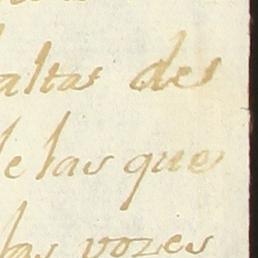 altas des
de las que
las vozes